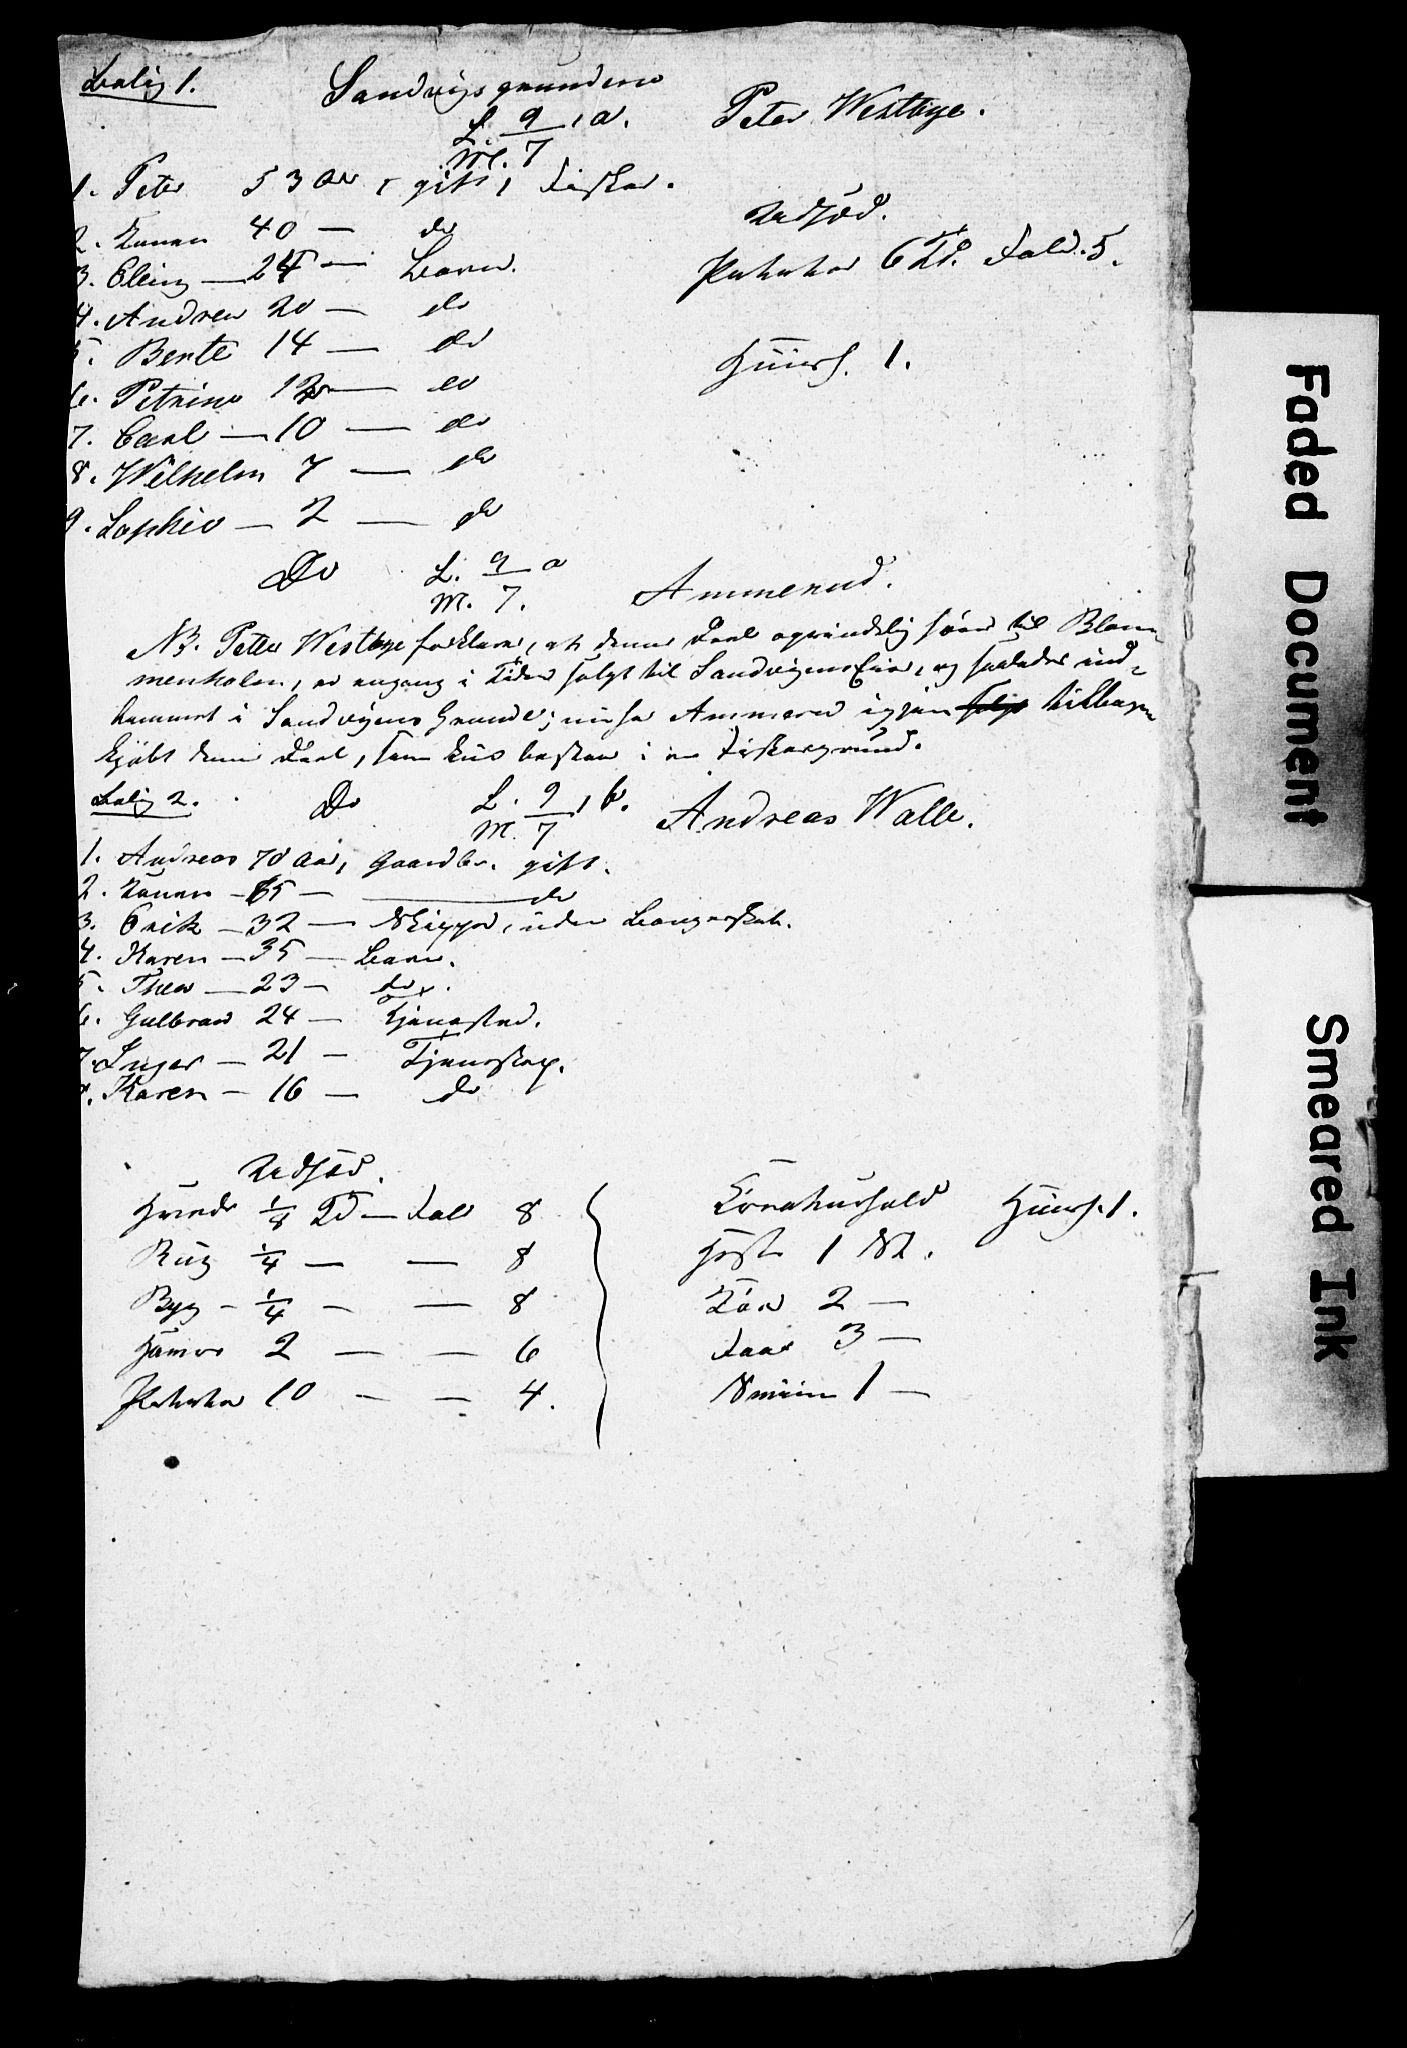 Bolig 1. Sandvigsgrundene L. 9/M. 7, a. Peter Westbye.
1. Peter 53 Aar, gift, Fisker.
2. Konen 40 — do
3. Eling — 24 — Barn.
4. Andrea 20 — do
5. Bente 14 — do
6. Petrine 12 — do
7. Carl — 10 — do
8. Wilhelm 7 — do
9. Sophie — 2 — do
Udsæd.
Poteter 6 Td. Fold. 5.
Huusf. 1.
Do L. 9/M. 7. a Ammerud.
NB. Peter Westbye forklarer, at denne Deel oprindelig hører til Blom-
menholm, er engang i Tiden solgt til Sandvigens Eier, og saaledes ind-
kommet i Sandvigens Grunde; men har Ammerud igjen solgt tilbage
kjøbt denne Deel, som kun bestaar i en Fiskergrund.
Bolig 2. Do L. 9/M. 7, b. Andreas Walle.
1. Andreas 70 Aar, Gaardbr. gift.
2. Konen — 65 — do
3. Erik — 32 — Skipper, uden Borgerskab.
4. Karen — 35 — Barn.
5. Thea — 23 — do.
6. Gulbran 24 — Tjenested.
7. Inger — 21 — Tjenestep.
8. Karen — 16 — do
Udsæd.
Hvede 1/8 Td — Fold 8
Rug 1/4 — — 8
Byg — 1/4 — — 8
Havre 2 — — 6
Poteter 10 — — 4.
Kreaturhold Huusf. 1.
Heste 1 St.
Kør 2 —
Faar 3 —
Sviin 1 —
Faded Document
Smeared Ink